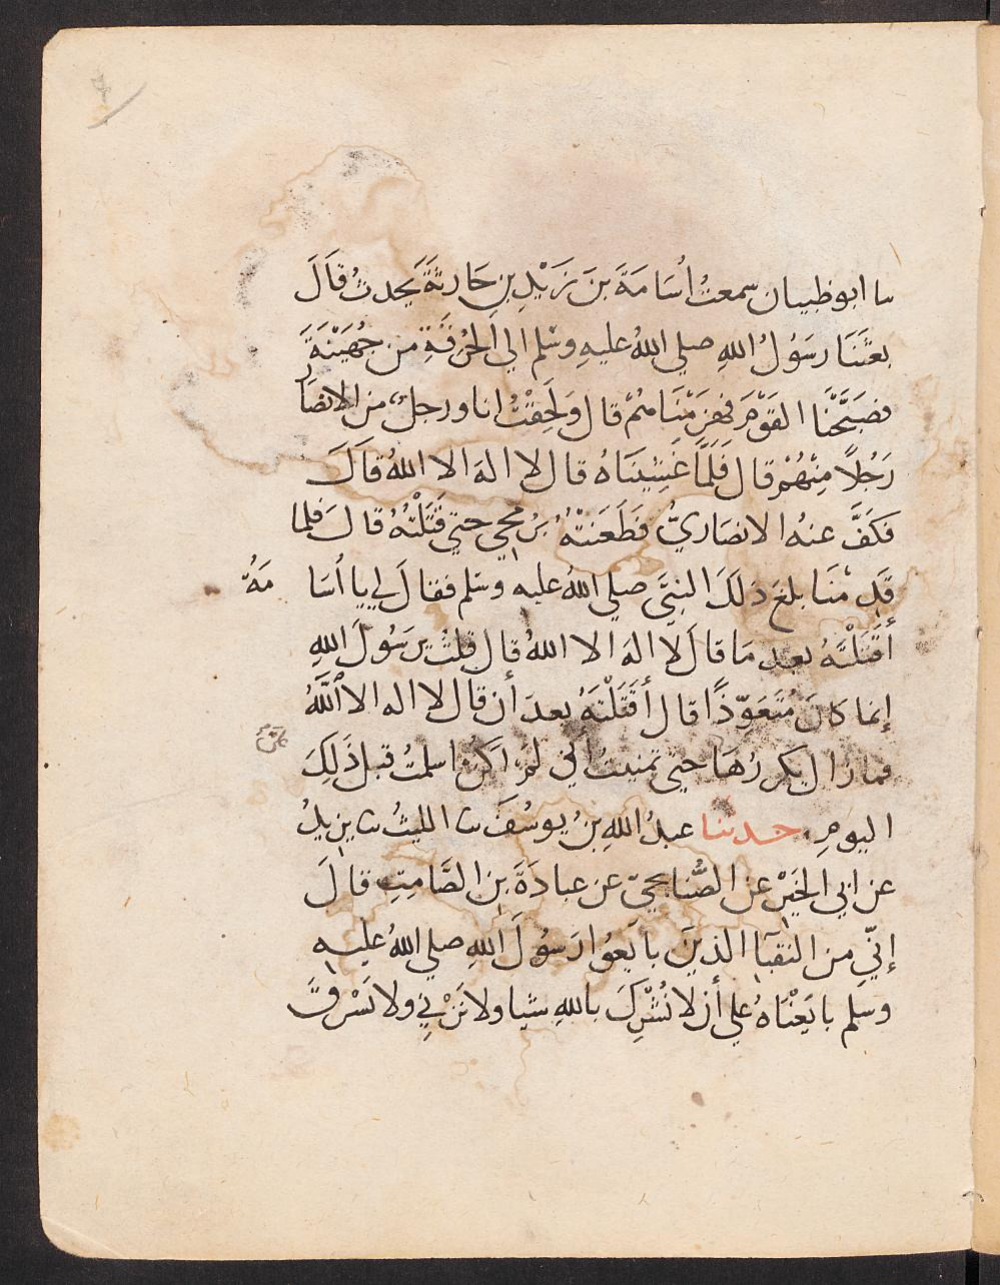 سا ابو ظبيان سمعتُ أُسَامَةَ بنَ زَيْدِ بنِ حَارثةَ يَحدثُ قَالَ
بعثَنَا رسَوُلُ اللهِ صلي اللهُ عليهِ وسَلم الي الحُرَقَةِ من جُهَيْنَةَ
فصَبَّحْنَا القَوْمَ فهَزَمْنَاهُمْ قال وَلَحِقْتُ انا ورجلٌ من الانصَا
رَجُلاً مِنْهُمْ قال فَلَمَّا غَشِيْنَاهُ قال لا اله الا اللهُ قالَ
فكَفَّ عنهُ الانصَاريُّ فطَعَنتهُ برُمحي حتي قَتَلْتُهُ قالَ فلما
قَدِمْنَا بلغَ ذلكَ النبيَّ صلي اللهُ عليه وسَلم فقالَ لي يا أُسَا مَةُ
أقَتَلْتَهُ بعد مَا قال لا اله الا اللهُ قال قلتُ يرَسُولَ اللهِ
إنما كانَ مُتَعَوّذًا قال أقَتَلْتَهُ بعدَ أن قال لا اله الا اللهُ
فما زال يكررُهَا حتي تمنيتُ أني لم اكن اسلمتُ قبل ذَلِكَ
اليومِ حدثنا عبدُ اللهِ بنُ يوسُفَ سا الليثُ سا يزيدُ
عن ابي الخَيْرِ عن الصُّنابحيّ عن عبادَةَ بنِ الصَّامِتِ قالَ
إنّي من النقبَا الذينَ بايَعُوا رَسوُلَ اللهِ صلي اللهُ عليه
وسلم بايَعْنَاهُ علي أن لا نُشْرِكَ باللهِ شيا ولا نَزْنِي ولا نَسْرقَ